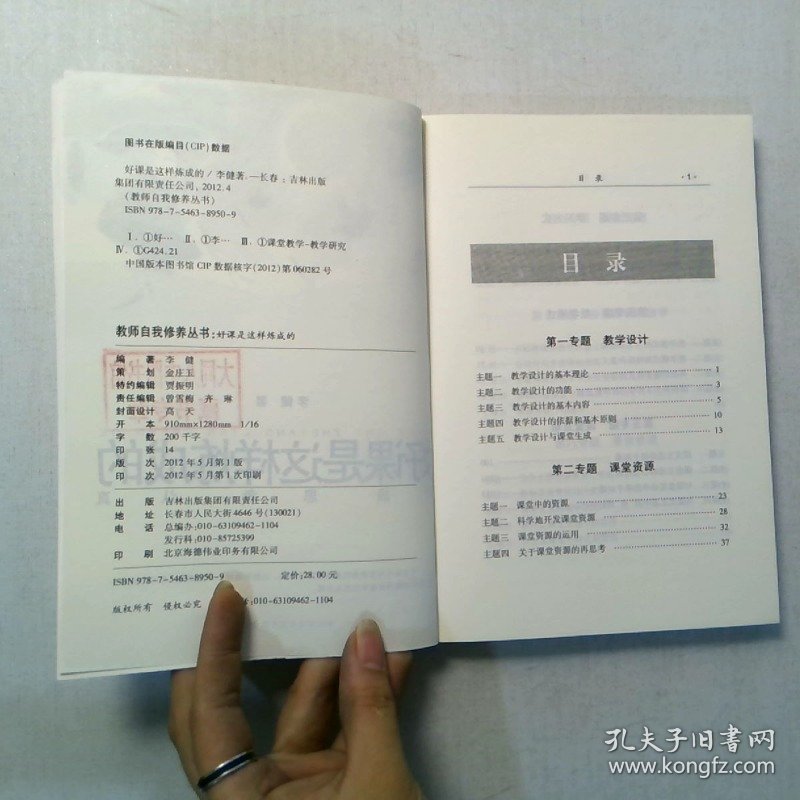 图书在版编目(CIP)数据
好课是这样炼成的 / 李健著. —长春：吉林出版
集团有限责任公司, 2012.4
(教师自我修养丛书)
ISBN 978-7-5463-8950-9
Ⅰ. ①好… Ⅱ. ①李… Ⅲ. ①课堂教学-教学研究
Ⅳ. ①G424.21
中国版本图书馆 CIP 数据核字(2012)第 060282 号
教师自我修养丛书:好课是这样炼成的
编 著 李 健
策 划 金庄玉
特约编辑 贾振明
责任编辑 曾雪梅 齐 琳
封面设计 高 天
开 本 910mm×1280mm 1/16
字 数 200 千字
印 张 14
版 次 2012 年 5 月第 1 版
印 次 2012 年 5 月第 1 次印刷
出 版 吉林出版集团有限责任公司
地 址 长春市人民大街 4646 号(130021)
电 话 总编办:010-63109462-1104
发行科:010-85725399
印 刷 北京海德伟业印务有限公司
ISBN 978-7-5463-8950-9 定价:28.00 元
版权所有 侵权必究 :010-63109462-1104
目 录 ·1·
目 录
第一专题 教学设计
主题一 教学设计的基本理论 1
主题二 教学设计的功能 3
主题三 教学设计的基本内容 5
主题四 教学设计的依据和基本原则 10
主题五 教学设计与课堂生成 13
第二专题 课堂资源
主题一 课堂中的资源 23
主题二 科学地开发课堂资源 28
主题三 课堂资源的运用 32
主题四 关于课堂资源的再思考 37
孔夫子旧书网
www.kongfz.com